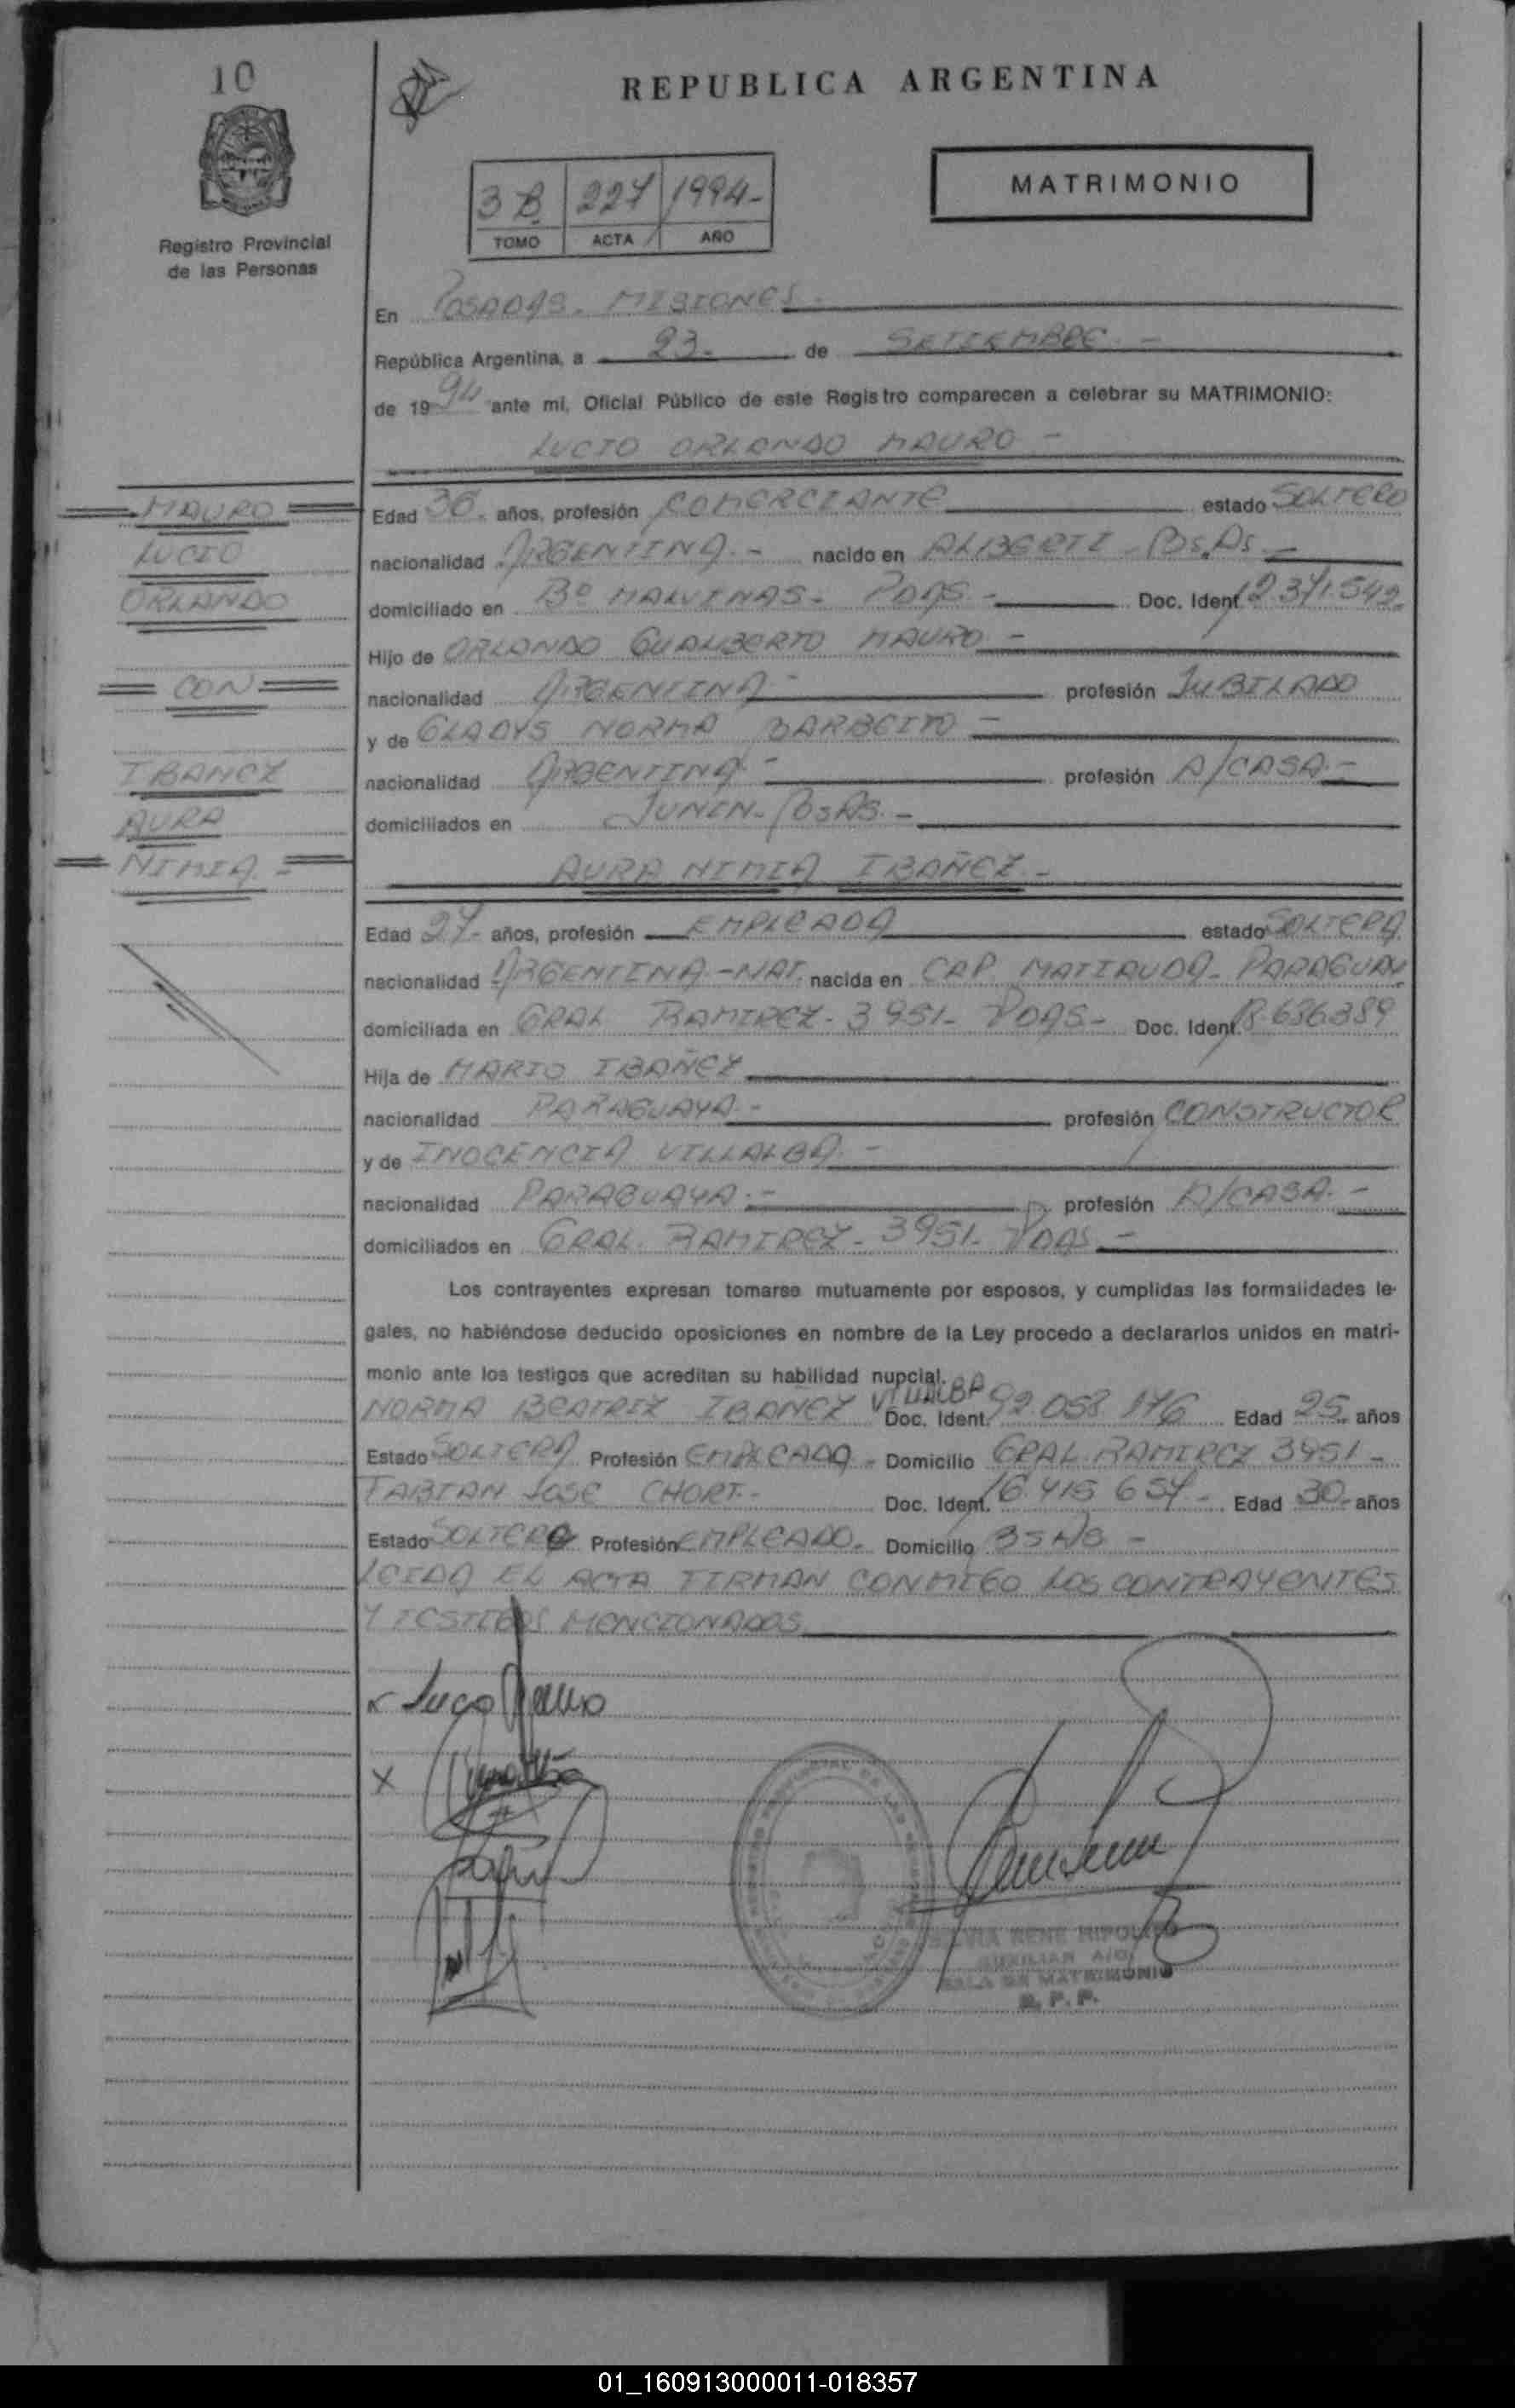 10
REPUBLICA ARGENTINA
MATRIMONIO
3 B. 227 1994-
TOMO ACTA AÑO
Registro Provincial
de las Personas
En POSADAS. MISIONES.
República Argentina, a 23. de SETIEMBRE. -
de 1994 ante mi, Oficial Público de este Registro comparecen a celebrar su MATRIMONIO:
LUCIO ORLANDO MAURO -
MAURO
LUCIO
ORLANDO
CON
IBANEZ
AURA
NIMIA. -
Edad 36. años, profesión COMERCIANTE estado SOLTERO
nacionalidad ARGENTINA. - nacido en ALBERTI - Bs.As. -
domiciliado en Bº MALVINAS. PDAS - Doc. Ident. 12.371.542.
Hijo de ORLANDO GUALBERTO MAURO -
nacionalidad ARGENTINA - profesión JUBILADO
y de GLADYS NORMA BARBEITO -
nacionalidad ARGENTINA. - profesión A/CASA. -
domiciliados en JUNIN - BsAs. -
AURA NIMIA IBAÑEZ. -
Edad 27- años, profesión EMPLEADA estado SOLTERA
nacionalidad ARGENTINA. - NAT. nacida en CAP. MATIAUDA - PARAGUAY
domiciliada en GRAL RAMIREZ - 3951 - PDAS - Doc. Ident. 18.636389
Hija de MARIO IBAÑEZ
nacionalidad PARAGUAYA - profesión CONSTRUCTOR
y de INOCENCIA VILLALBA. -
nacionalidad PARAGUAYA. - profesión A/CASA. -
domiciliados en GRAL. RAMIREZ - 3951 - PDAS -
Los contrayentes expresan tomarse mutuamente por esposos, y cumplidas las formalidades le-
gales, no habiéndose deducido oposiciones en nombre de la Ley procedo a declararlos unidos en matri-
monio ante los testigos que acreditan su habilidad nupcial.
NORMA BEATRIZ IBAÑEZ VILLALBA Doc. Ident. 92.058.176 Edad 25. años
Estado SOLTERA Profesión EMPLEADA - Domicilio GRAL. RAMIREZ 3951 -
FABIAN JOSE CHORT. - Doc. Ident. 16.415.657 - Edad 30- años
Estado SOLTERO Profesión EMPLEADO. Domicilio
LEIDA EL ACTA FIRMAN CONMIGO LOS CONTRAYENTES
Y TESTIGOS MENCIONADOS
x Lucio Mauro
x
RENE HIPOLITO
AUXILIAR
SALA DE MATRIMONIO
R. P. P.
01_160913000011-018357